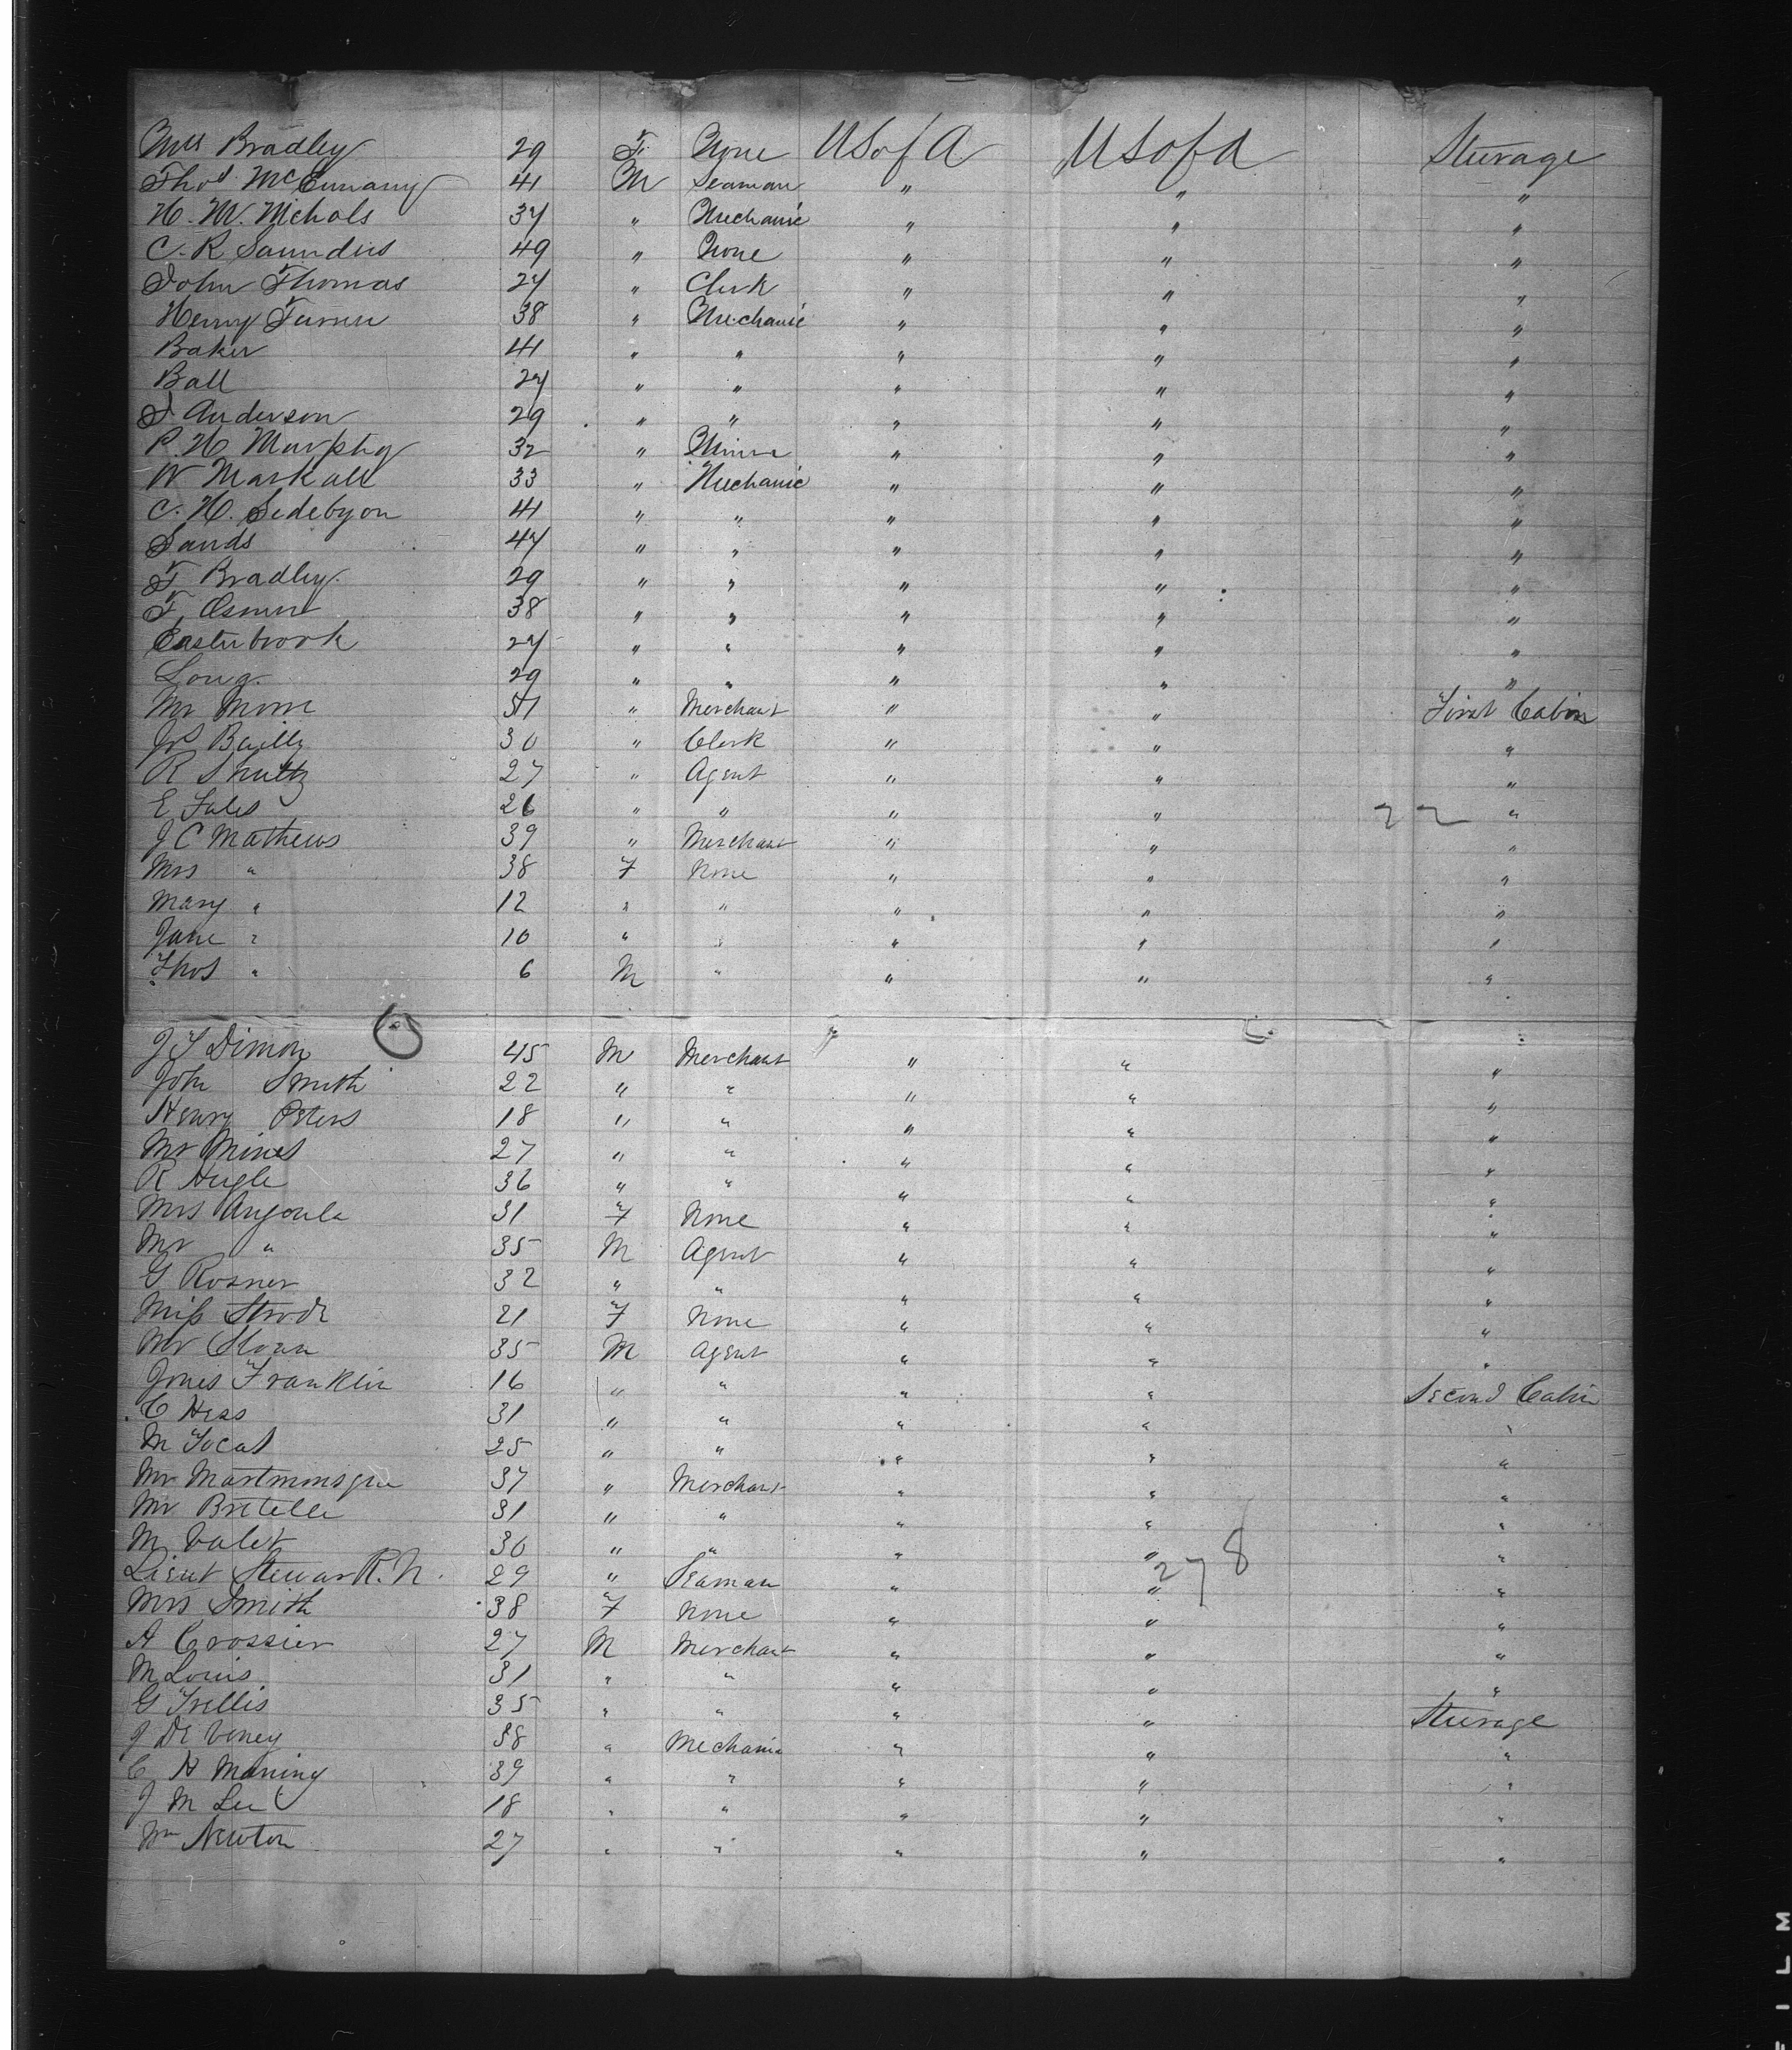 Mrs Bradley 29 F. None U S of A U S of A Steerage
Thos McEnnany 41 M Seaman " " "
H. W. Nichols 37 " Mechanic " " "
C. R. Saunders 49 " None " " "
John Thomas 27 " Clerk " " "
Henry Turner 38 " Mechanic " " "
Baker 41 " " " " "
Ball 27 " " " " "
J Anderson 29 " " " " "
P. H Murphy 32 " Miner " " "
W Markall 33 " Mechanic " " "
C. H. Sedebyon 41 " " " " "
Sands 47 " " " " "
F Bradley. 29 " " " " "
F, Osmer 38 " " " " "
Easterbrook 27 " " " " "
Long. 29 " " " " "
Mr 51 " Merchant " " First Cabin
Jos Bailly 30 " Clerk " " "
R Shultz 27 " Agent " " "
E Fales 26 " " " " 22 "
J C Mathews 39 " Merchant " " "
Mrs " 38 F None " " "
Mary " 12 " " " " "
Jane " 10 " " " " "
Thos " 6 M " " " "
J S Dimon 45 M Merchant " " "
John Smith 22 " " " " "
Henry Peters 18 " " " " "
Mr Mines 27 " " " " "
R Hugle 36 " " " " "
Mrs Angoula 31 F None " " "
Mr " 35 M Agent " " "
G Rosner 32 " " " " "
Miss Strode 21 F None " " "
Mr Sloan 35 M Agent " " "
Jones Franklin 16 " " " " Second Cabin
C Hess 31 " " " " "
M 25 " " " " "
Mr 37 " Merchant " " "
Mr Bretelle 31 " " " " "
M Valet 30 " " " " "
Lieut Stewart R. N. 29 " Seaman " " 278 "
Mrs Smith 38 F None " " "
A Crossier 27 M Merchant " " "
M Louis 31 " " " " "
G Trellis 35 " " " " Steerage
J De Veney 38 " Mechanic " " "
C H Maning 39 " " " " "
J M Lee 18 " " " " "
Wm Newton 27 " " " " "
FILM